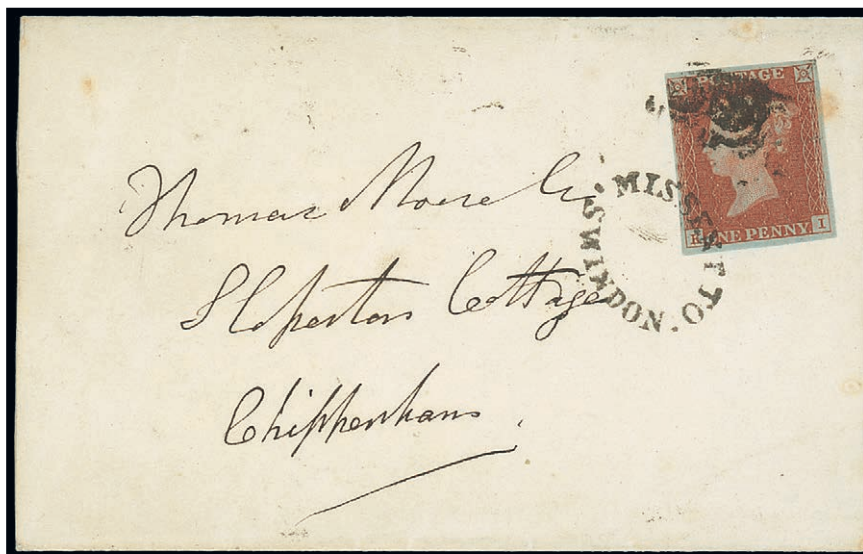 POSTAGE
R ONE PENNY I
MISSENT TO
SWINDON.
Thomas Moore Esq
Sloperton Cottage
Chippenham